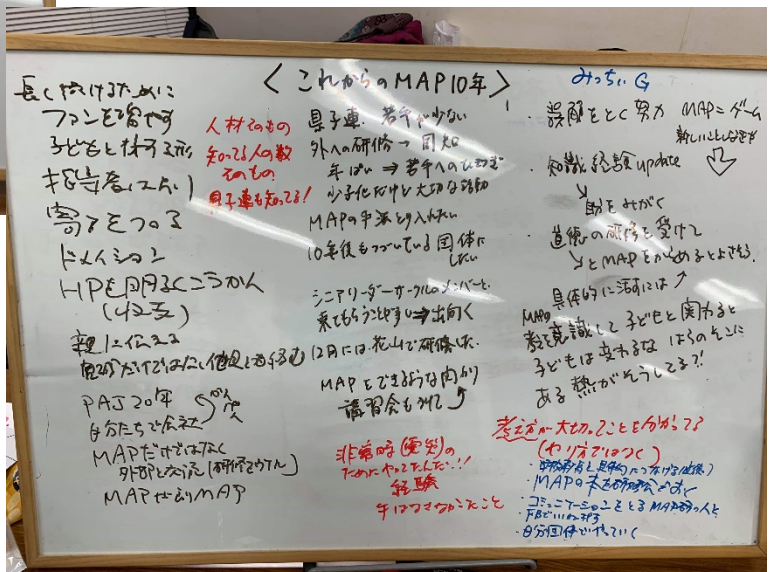 〈これからのMAP10年〉
みっちぃG
長く続けるために
ファンを増やす
子どもと接する形
指導者になりたい
寄付をつのる
ドメイション
HPを明るくこうかん
親に伝える
自分だけではない他人とも
PAJ20年
自分たちで会社
MAPだけではなく
外部と交流(研修でウケル)
MAP MAP
人材そのもの
知ってる人の数
そのもの
県子連も知ってる!
県子連 若手が少ない
外への研修→周知
年ぱい⇒若手への
少子化だけど大切な活動
MAPの手法とり入れたい
10年後もつづいている団体に
したい
シニアリーダーサークルのメンバーと、
来てもらうことやすい⇒出向く
12月には花山で研修した。
MAPをできるような関わり
講習会もうけて
非常時(震災)の
ためにやってたんだ!!
経験
手はなさなかったこと
・誤解をとく努力 MAP=ゲーム
新しいこと
・知識経験update
勘をみがく
道徳の研修を受けて
とMAPをからめるとよさそう。
具体的に活すには
MAPの
意識して子どもと関わると
子どもは変わるな はらのそこに
ある熱がそうしてる?!
考え方が大切ってことを分かってる
(やり方ではなく)
・MAPの本を
・コミュニケーションをとる MAP の人と
FBでいいね押す
・自分団体でやっていく